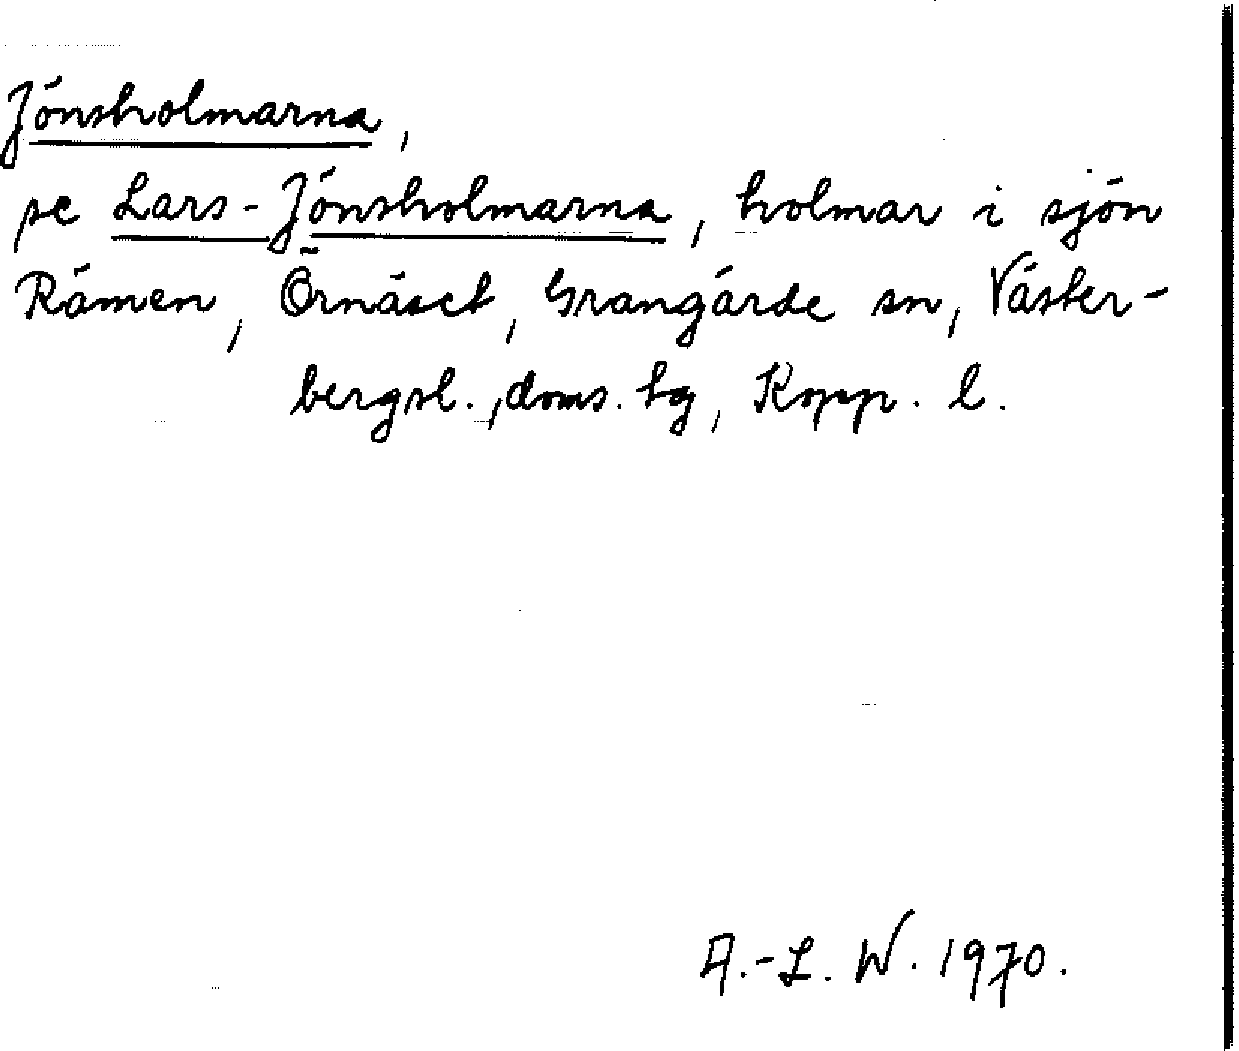 Jönsholmarna,
se Lars-Jönsholmarna, holmar i sjön
Rämen, Örnäset, Grangärde sn, Väster-
bergsl., doms. hg, Kopp. l.
A.-L. W. 1970.